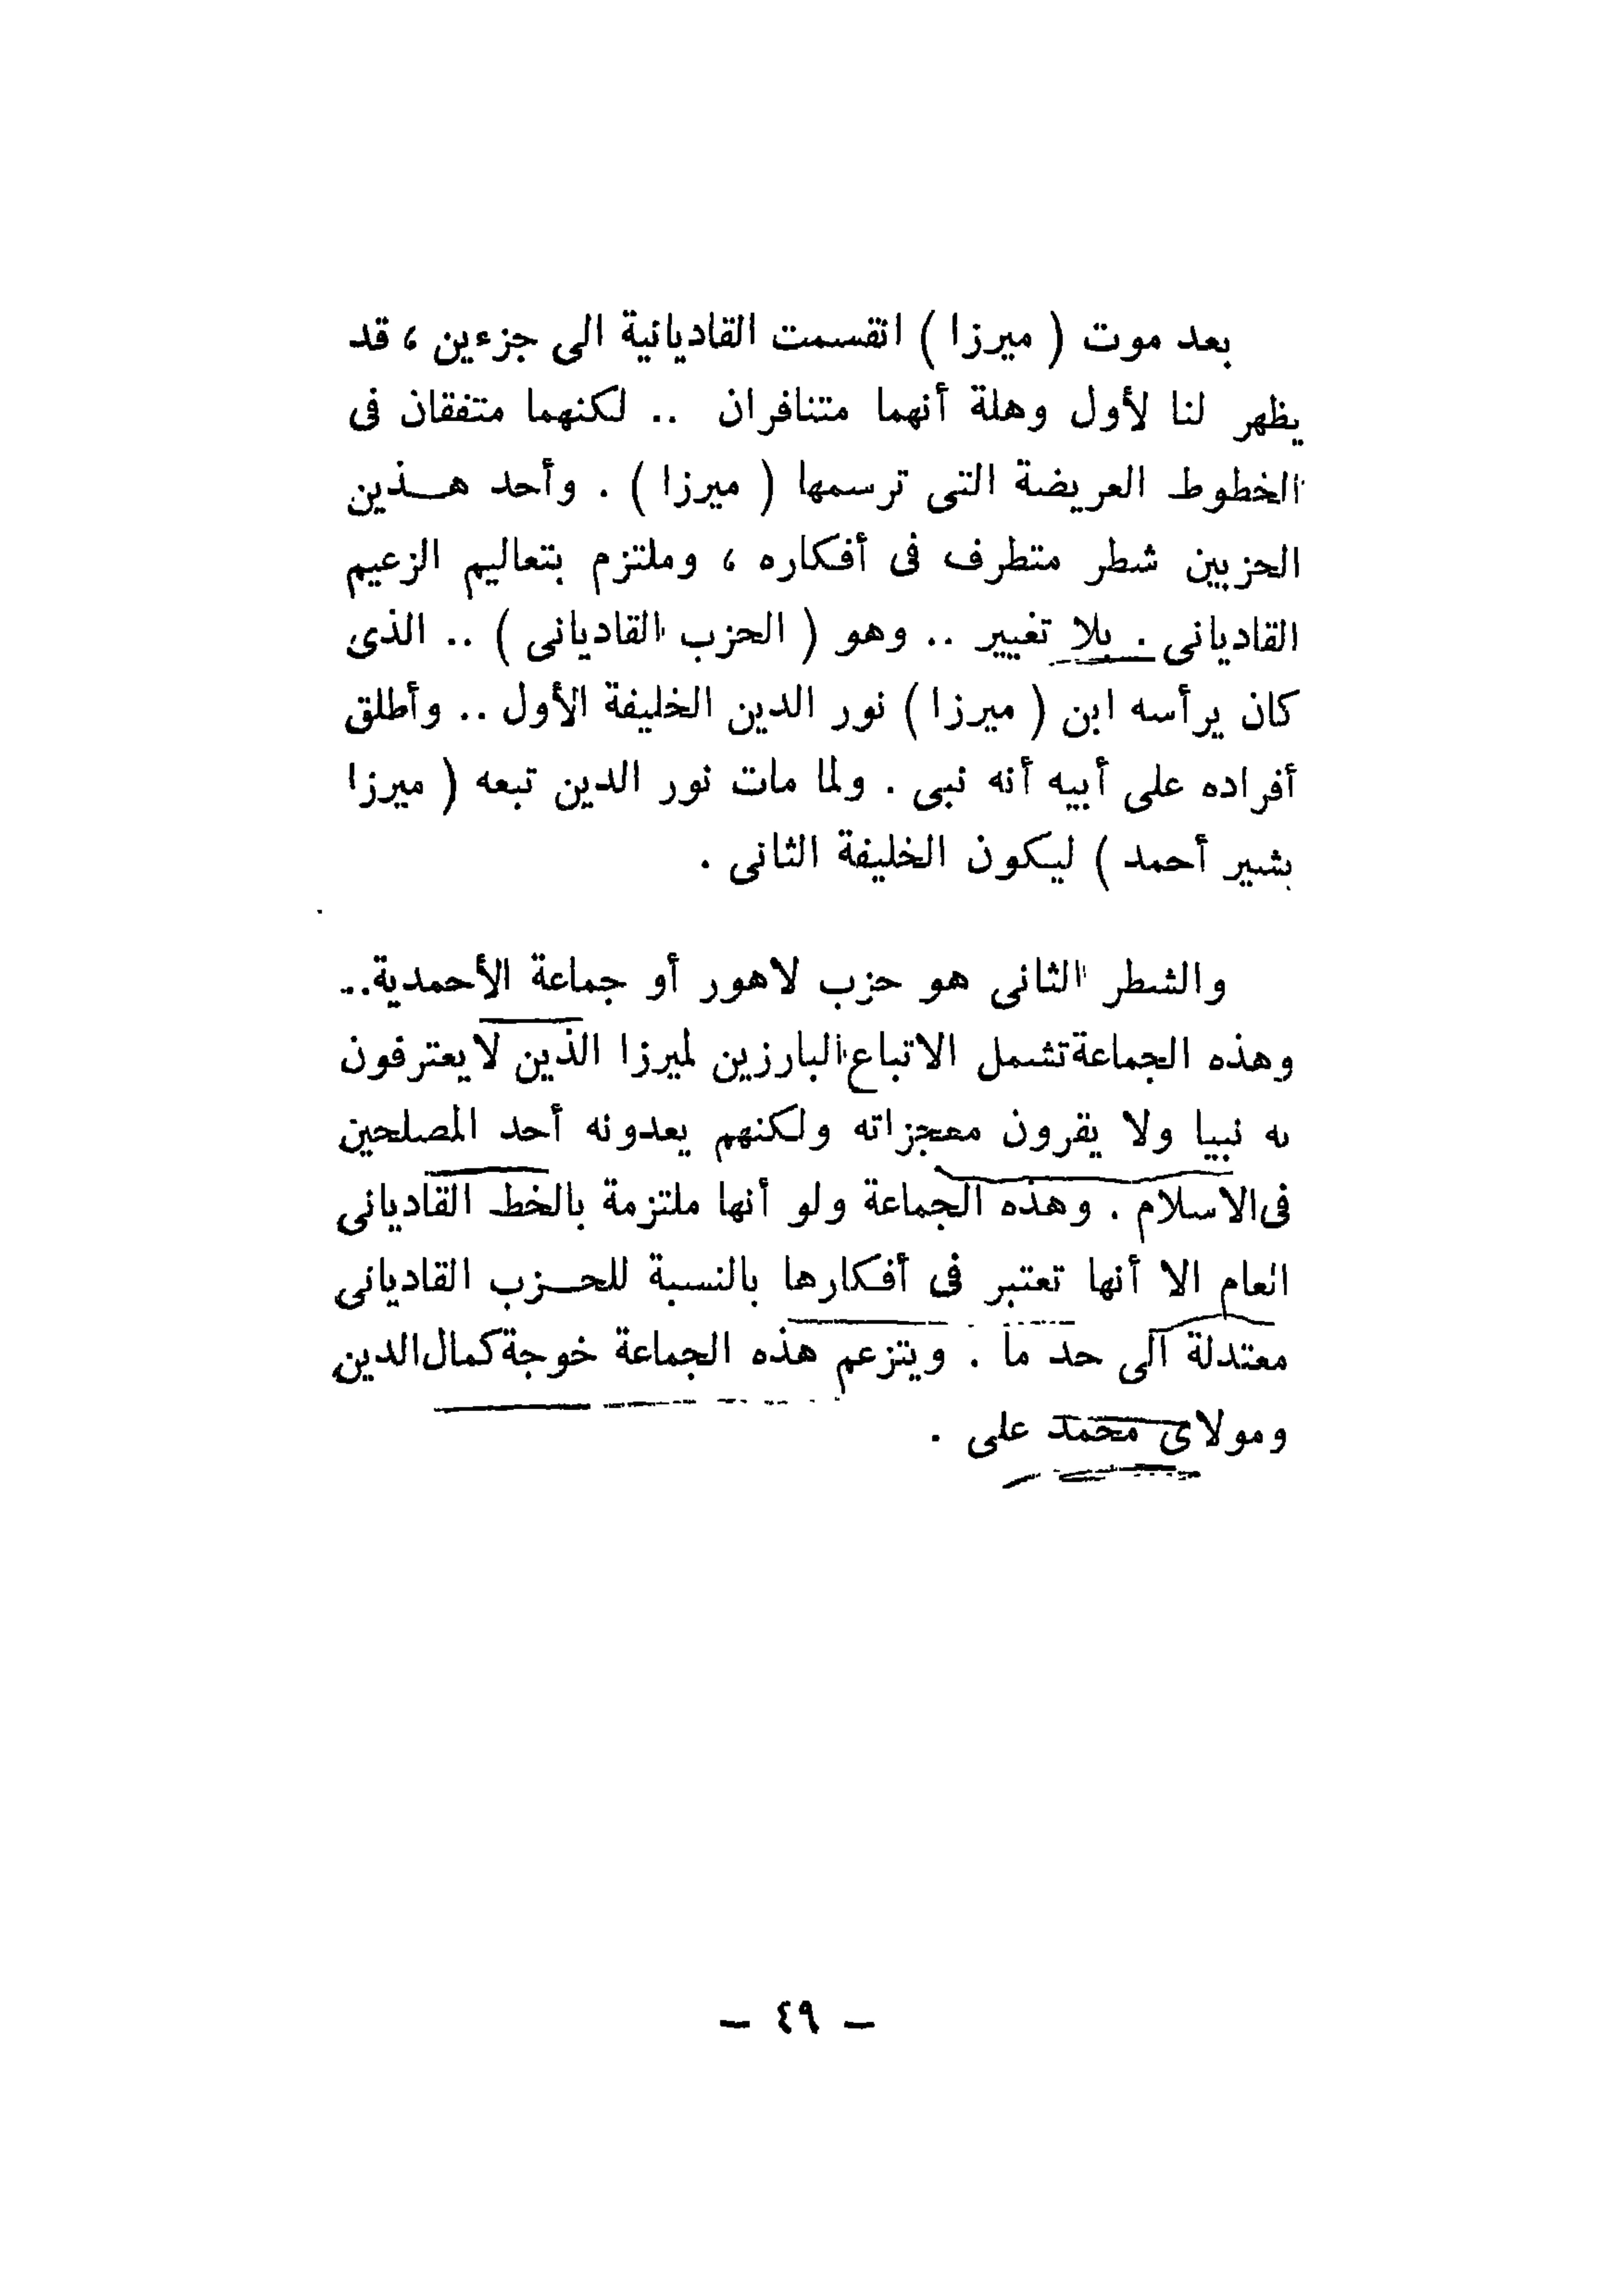 بعد موت ( ميرزا ) انقسمت القاديانية الى جزءين ، قد
يظهر لنا لأول وهلة أنهما متنافران .. لكنهما متفقان فى
الخطوط العريضة التى ترسمها ( ميرزا ) . وأحد هـــذين
الحزبين شطر متطرف فى أفكاره ، وملتزم بتعاليم الزعيم
القاديانى . بلا تغيير .. وهو ( الحزب القاديانى ) .. الذى
كان يرأسه ابن ( ميرزا ) نور الدين الخليفة الأول .. وأطلق
أفراده على أبيه أنه نبى . ولما مات نور الدين تبعه ( ميرزا
بشير أحمد ) ليكون الخليفة الثانى .
والشطر الثانى هو حزب لاهور أو جماعة الأحمدية..
وهذه الجماعة تشمل الاتباع البارزين لميرزا الذين لا يعترفون
به نبيا ولا يقرون معجزاته ولكنهم يعدونه أحد المصلحين
فى الاسلام . وهذه الجماعة ولو أنها ملتزمة بالخط القاديانى
العام الا أنها تعتبر فى أفكارها بالنسبة للحـــزب القاديانى
معتدلة الى حد ما . ويتزعم هذه الجماعة خوجة كمال الدين
ومولاى محمد على .
— ٤٩ —